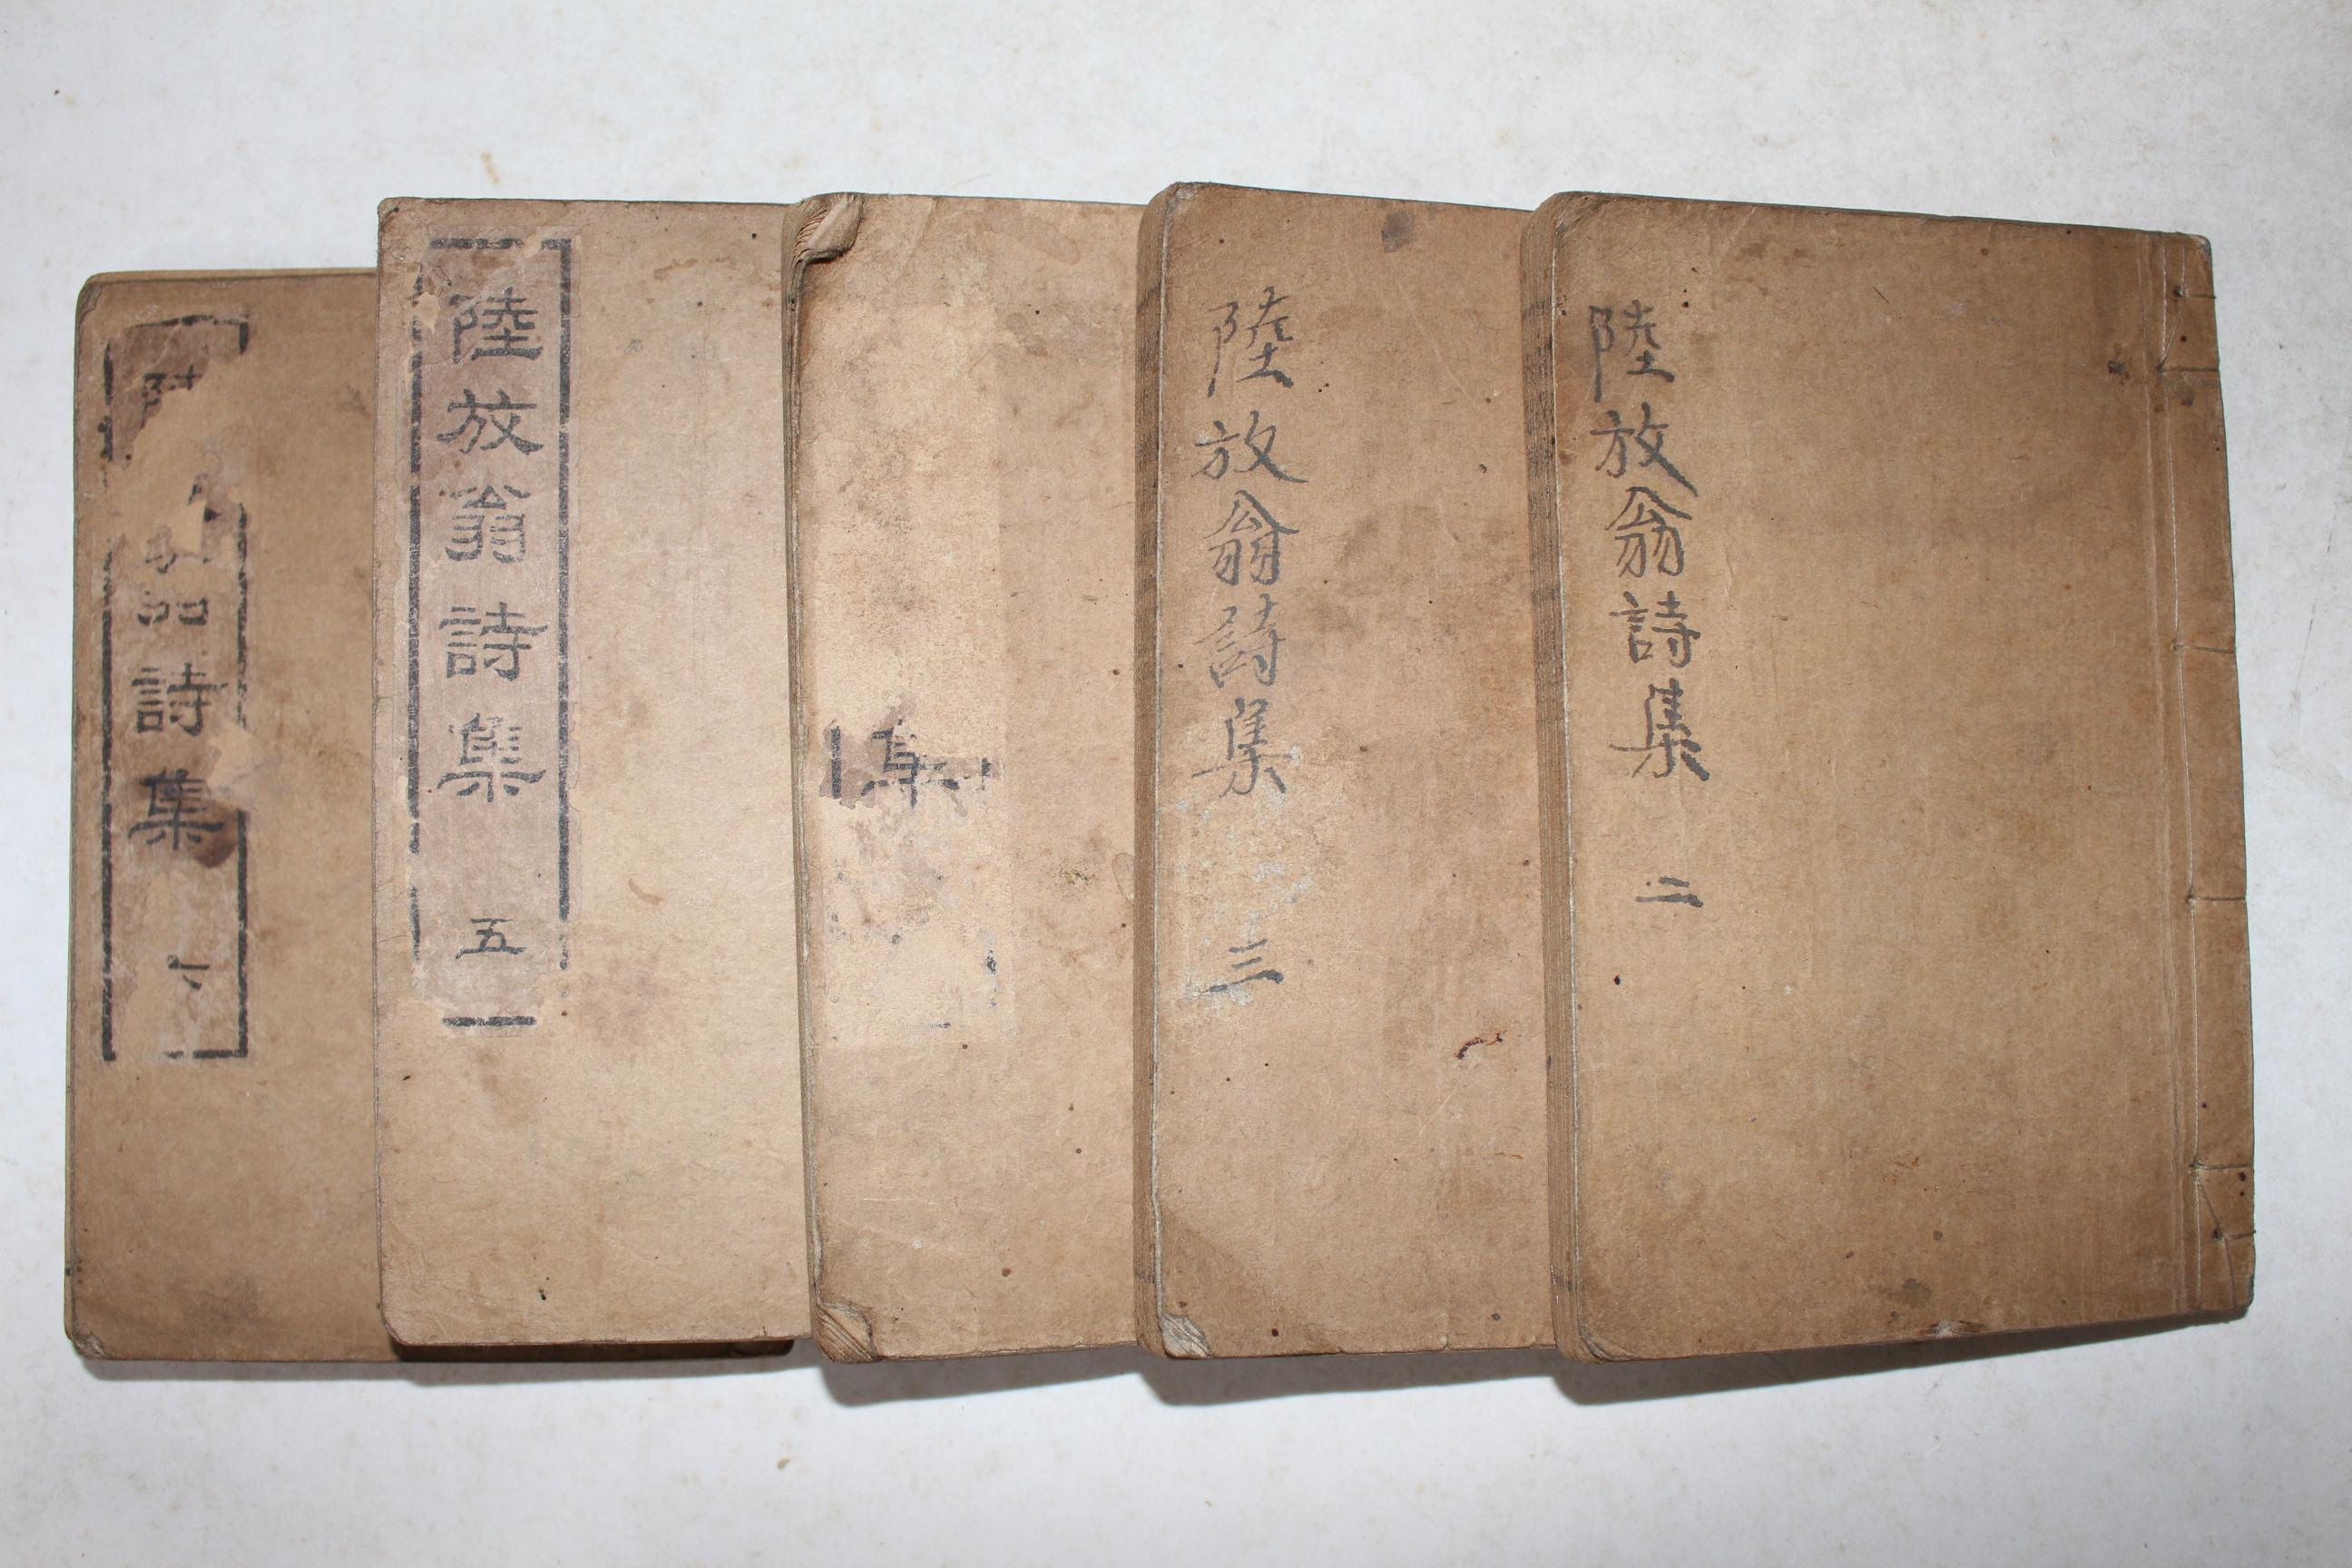 陸放翁詩集 二
陸放翁詩集 三
集
陸放翁詩集 五
詩集